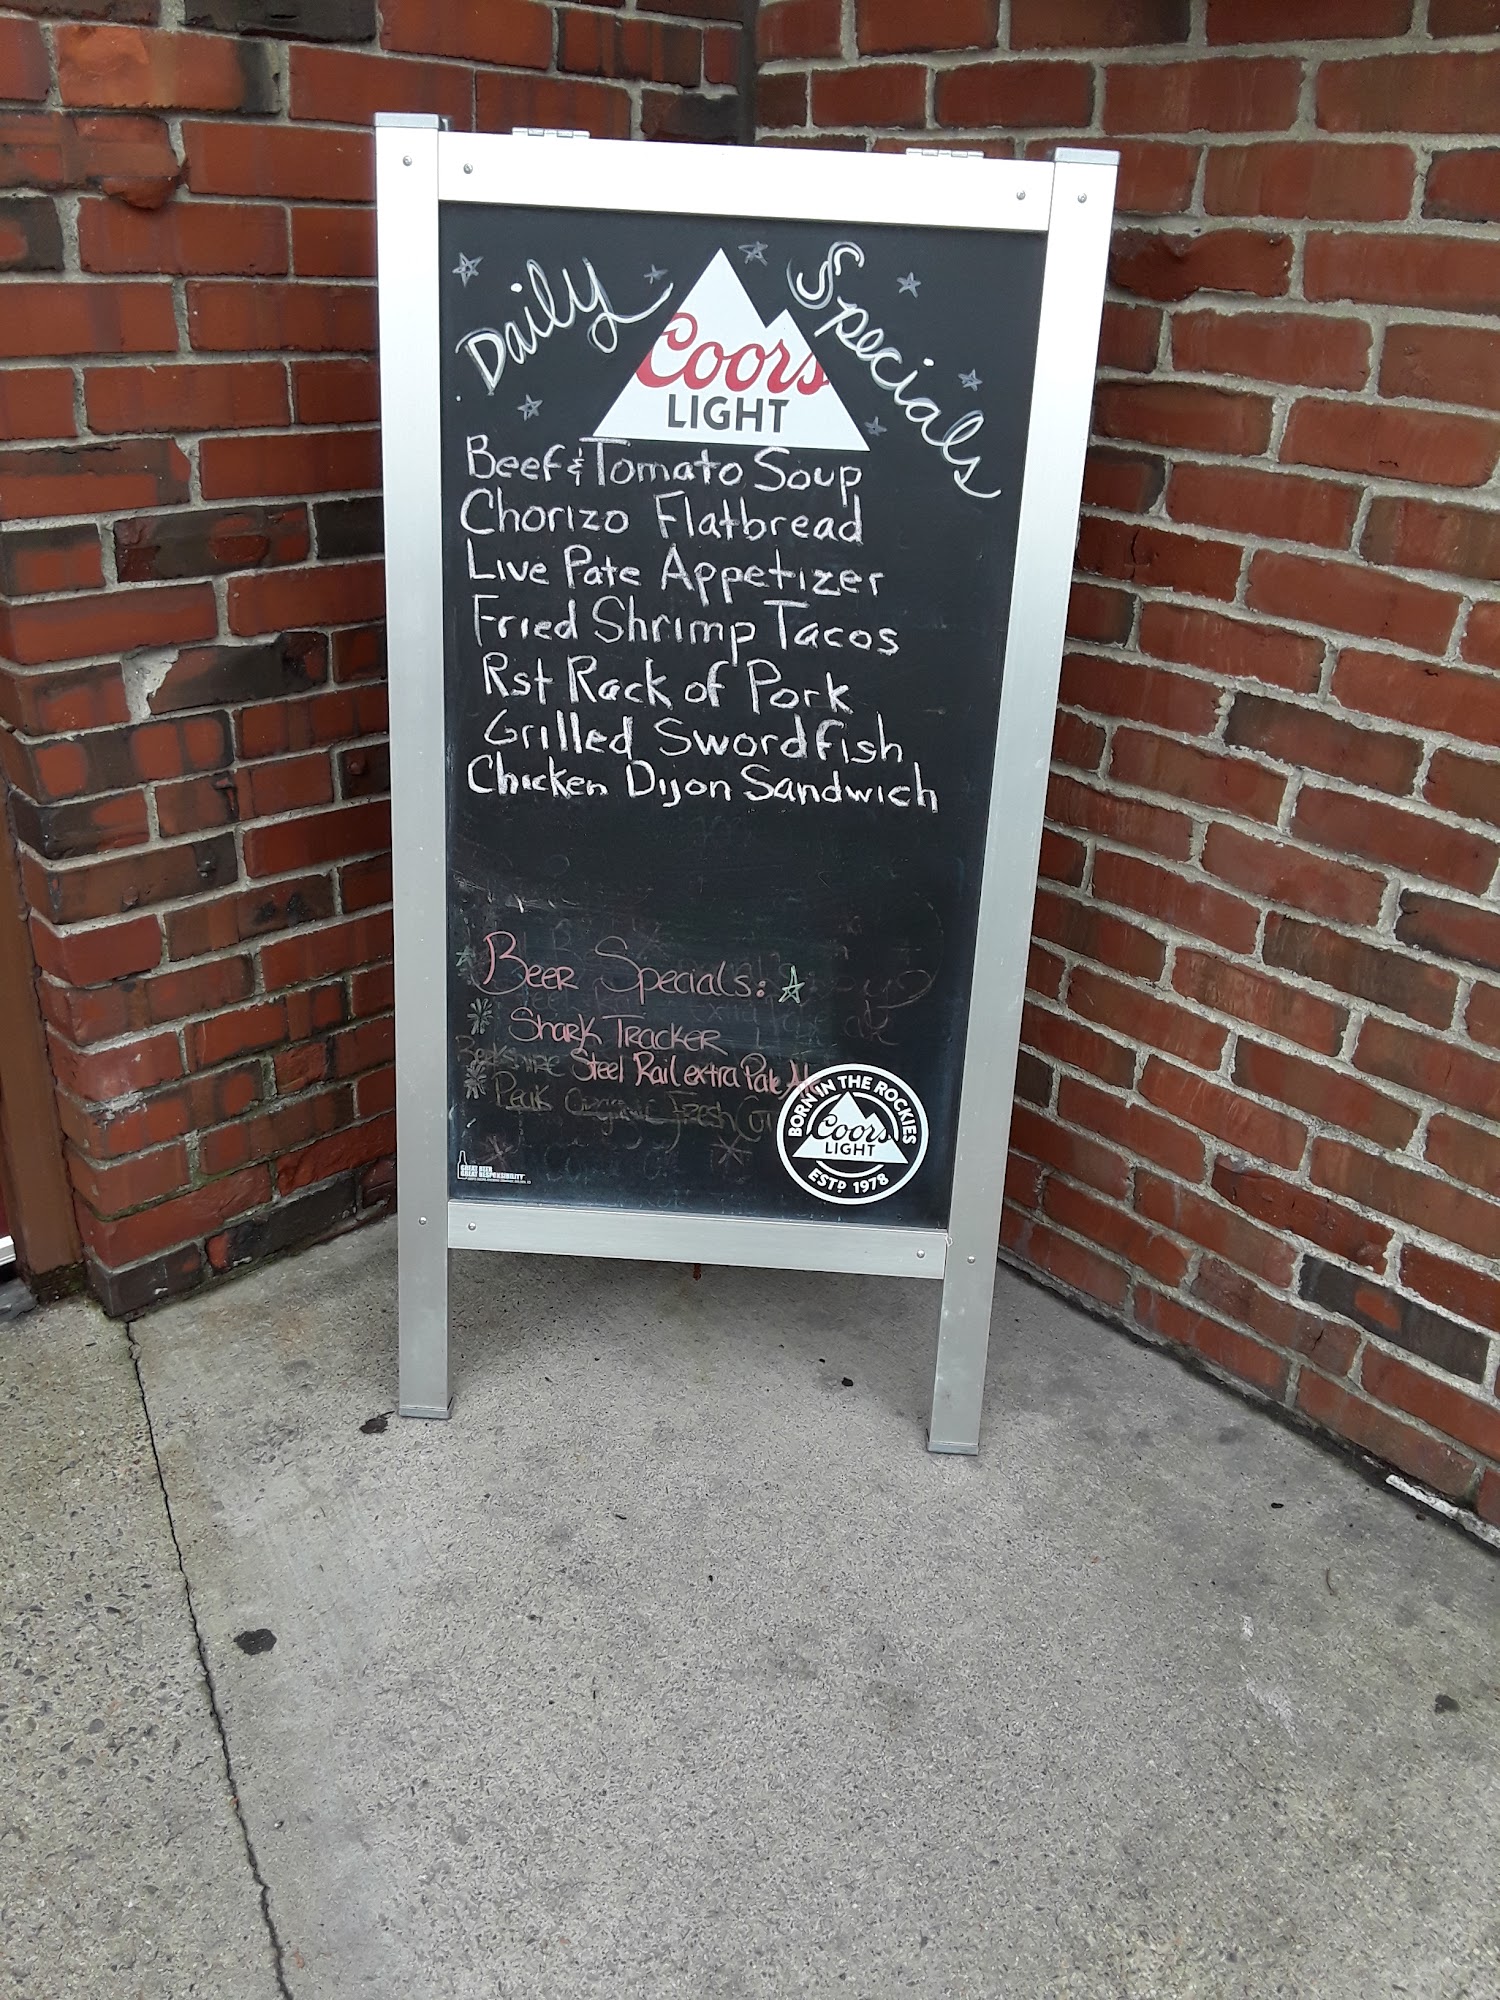 Daily Specials
Coors
LIGHT
Beef & Tomato Soup
Chorizo Flatbread
Live Pate Appetizer
Fried Shrimp Tacos
Rst Rack of Pork
Grilled Swordfish
Chicken Dijon Sandwich
Beer Specials:
Shark Tracker
Berkshire Steel Rail extra Pale
Peak Organic Fresh
BORN IN THE ROCKIES
Coors
LIGHT
ESTD 1978
GREAT BEER
GREAT RESPONSIBILITY